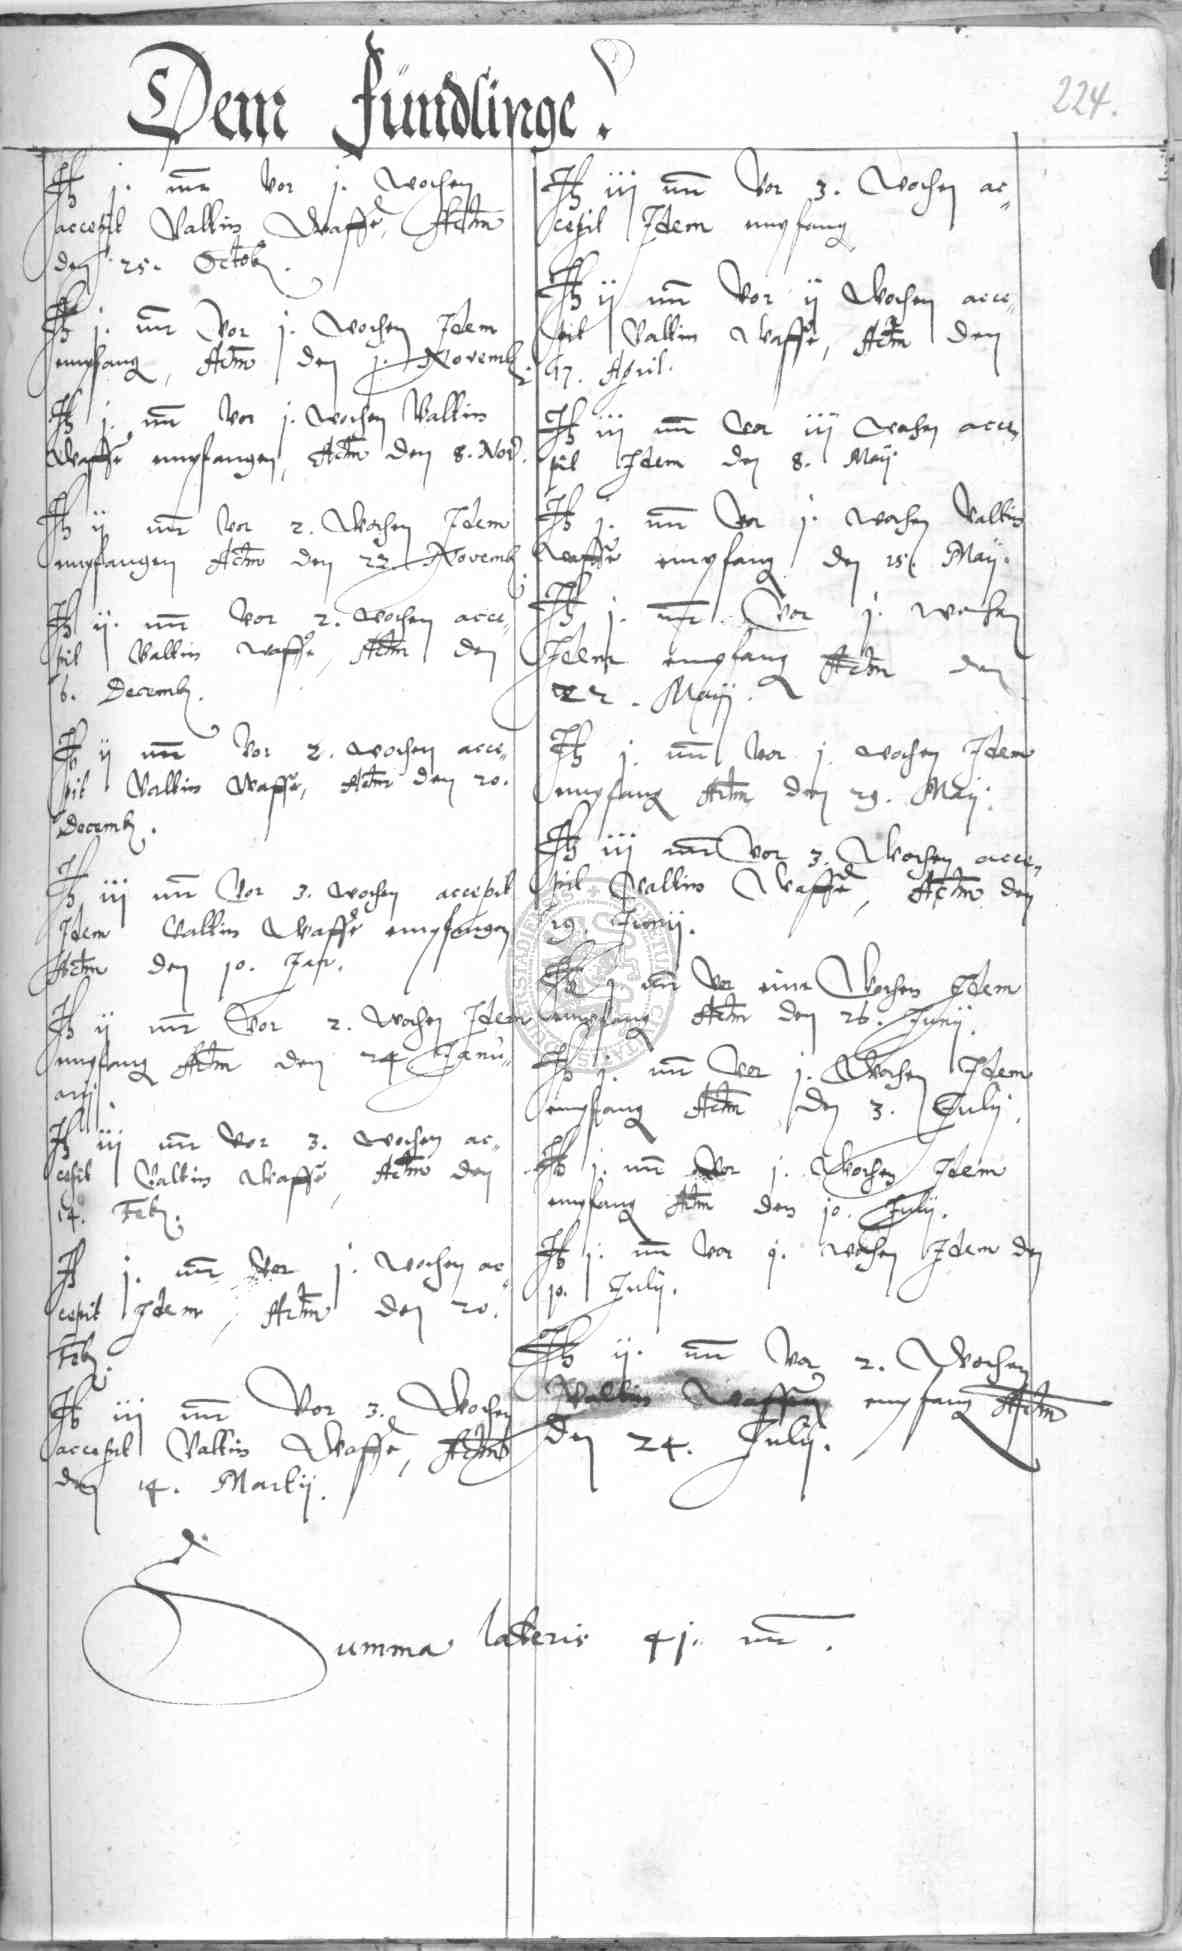 Dem Fündlinge.
224.
It j. mr vor j. wochen
accepit Valtin Waffe, Actum
den 25. Octob.
It j. mr vor j. wochen Idem
empfang, Actum den j. Novemb.
It j. mr vor j. wochen Valtin
Waffe empfangen, Actum den 8. Nov.
It ij mr vor 2. Wochen Idem
empfangen Actum den 22. Novemb.
It ij. mr vor 2. wochen acce-
pit Valtin Waffe, Actum den
6. Decemb.
It ij mr vor 2. wochen acce-
pit Valtin Waffe, Actum den 20.
Decemb.
It iij mr vor 3. wochen accepit
Idem Valtin Waffe empfangen
Actum den 10. Jan.
It ij mr vor 2. wochen Idem
empfang Actum den 24 Janu-
arij
It iij mr vor 3. wochen ac-
cepit Valtin Waffe, Actum den
14. Feb.
It j. mr vor j. wochen ac-
cepit Idem, Actum den 20.
Feb.
It iij mr Vor 3. Wochen
accepit Valtin Waffe, Actum
den 14. Martij.
It iij mr Vor 3. Wochen ac-
cepit Idem empfang
It ij mr vor ij Wochen acce-
pit Valtin Waffe, Actum den
17. April.
It iij mr vor iij wochen acce-
pit Idem den 8. Maij
It j. mr vor j. wochen Valtin
Waffe empfang den 15. Maij.
It j. mr vor j. wochen
Idem empfang Actum den
22. Maij.
It j. mr vor j. wochen Idem
empfang Actum den 29. Maij.
It iij mr vor 3. Wochen acce-
pit Valtin Waffe, Actum den
19. Junij.
It j mr vor einr Wochen Idem
empfang Actum den 26. Junij.
It j. mr vor j. Wochen Idem
empfang Actum den 3. Julij.
It j. mr vor j. Wochen Idem
empfang Actum den 10. Julij.
It j. mr vor j. wochen Idem den
10. Julij.
It ij. mr vor 2. Wochen
Valtin Waffen empfang Actum
den 24. Julij.
Summa lateris 41. mr.